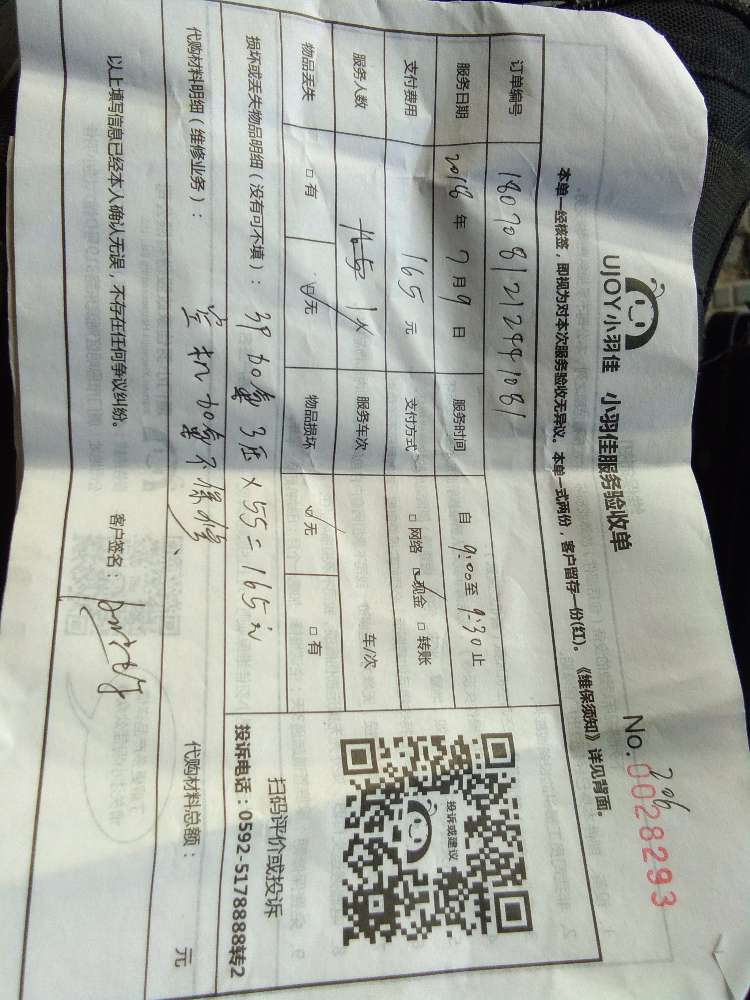 UJOY小羽佳 小羽佳服务验收单
206
No. 0028293
本单一经核签，即视为对本次服务验收无异议。本单一式两份，客户留存一份(红)。《维保须知》详见背面。
订单编号
服务日期 2018 年 7 月 9 日 服务时间 自 9:00 至 9:30 止
支付费用 165 元 支付方式 □ 网络 ☑ 现金 □ 转账
服务人数 1人 服务车次 车/次
物品丢失 □ 有 ☑ 无 物品损坏 ☑ 无 □ 有
损坏或丢失物品明细(没有可不填)：
3P加氟3压 x 55 = 165元
代购材料明细(维修业务)：
空机加氟不保修
代购材料总额： 元
以上填写信息已经本人确认无误，不存在任何争议纠纷。 客户签名：
投诉或建议
扫码评价或投诉
投诉电话：0592-5178888转2